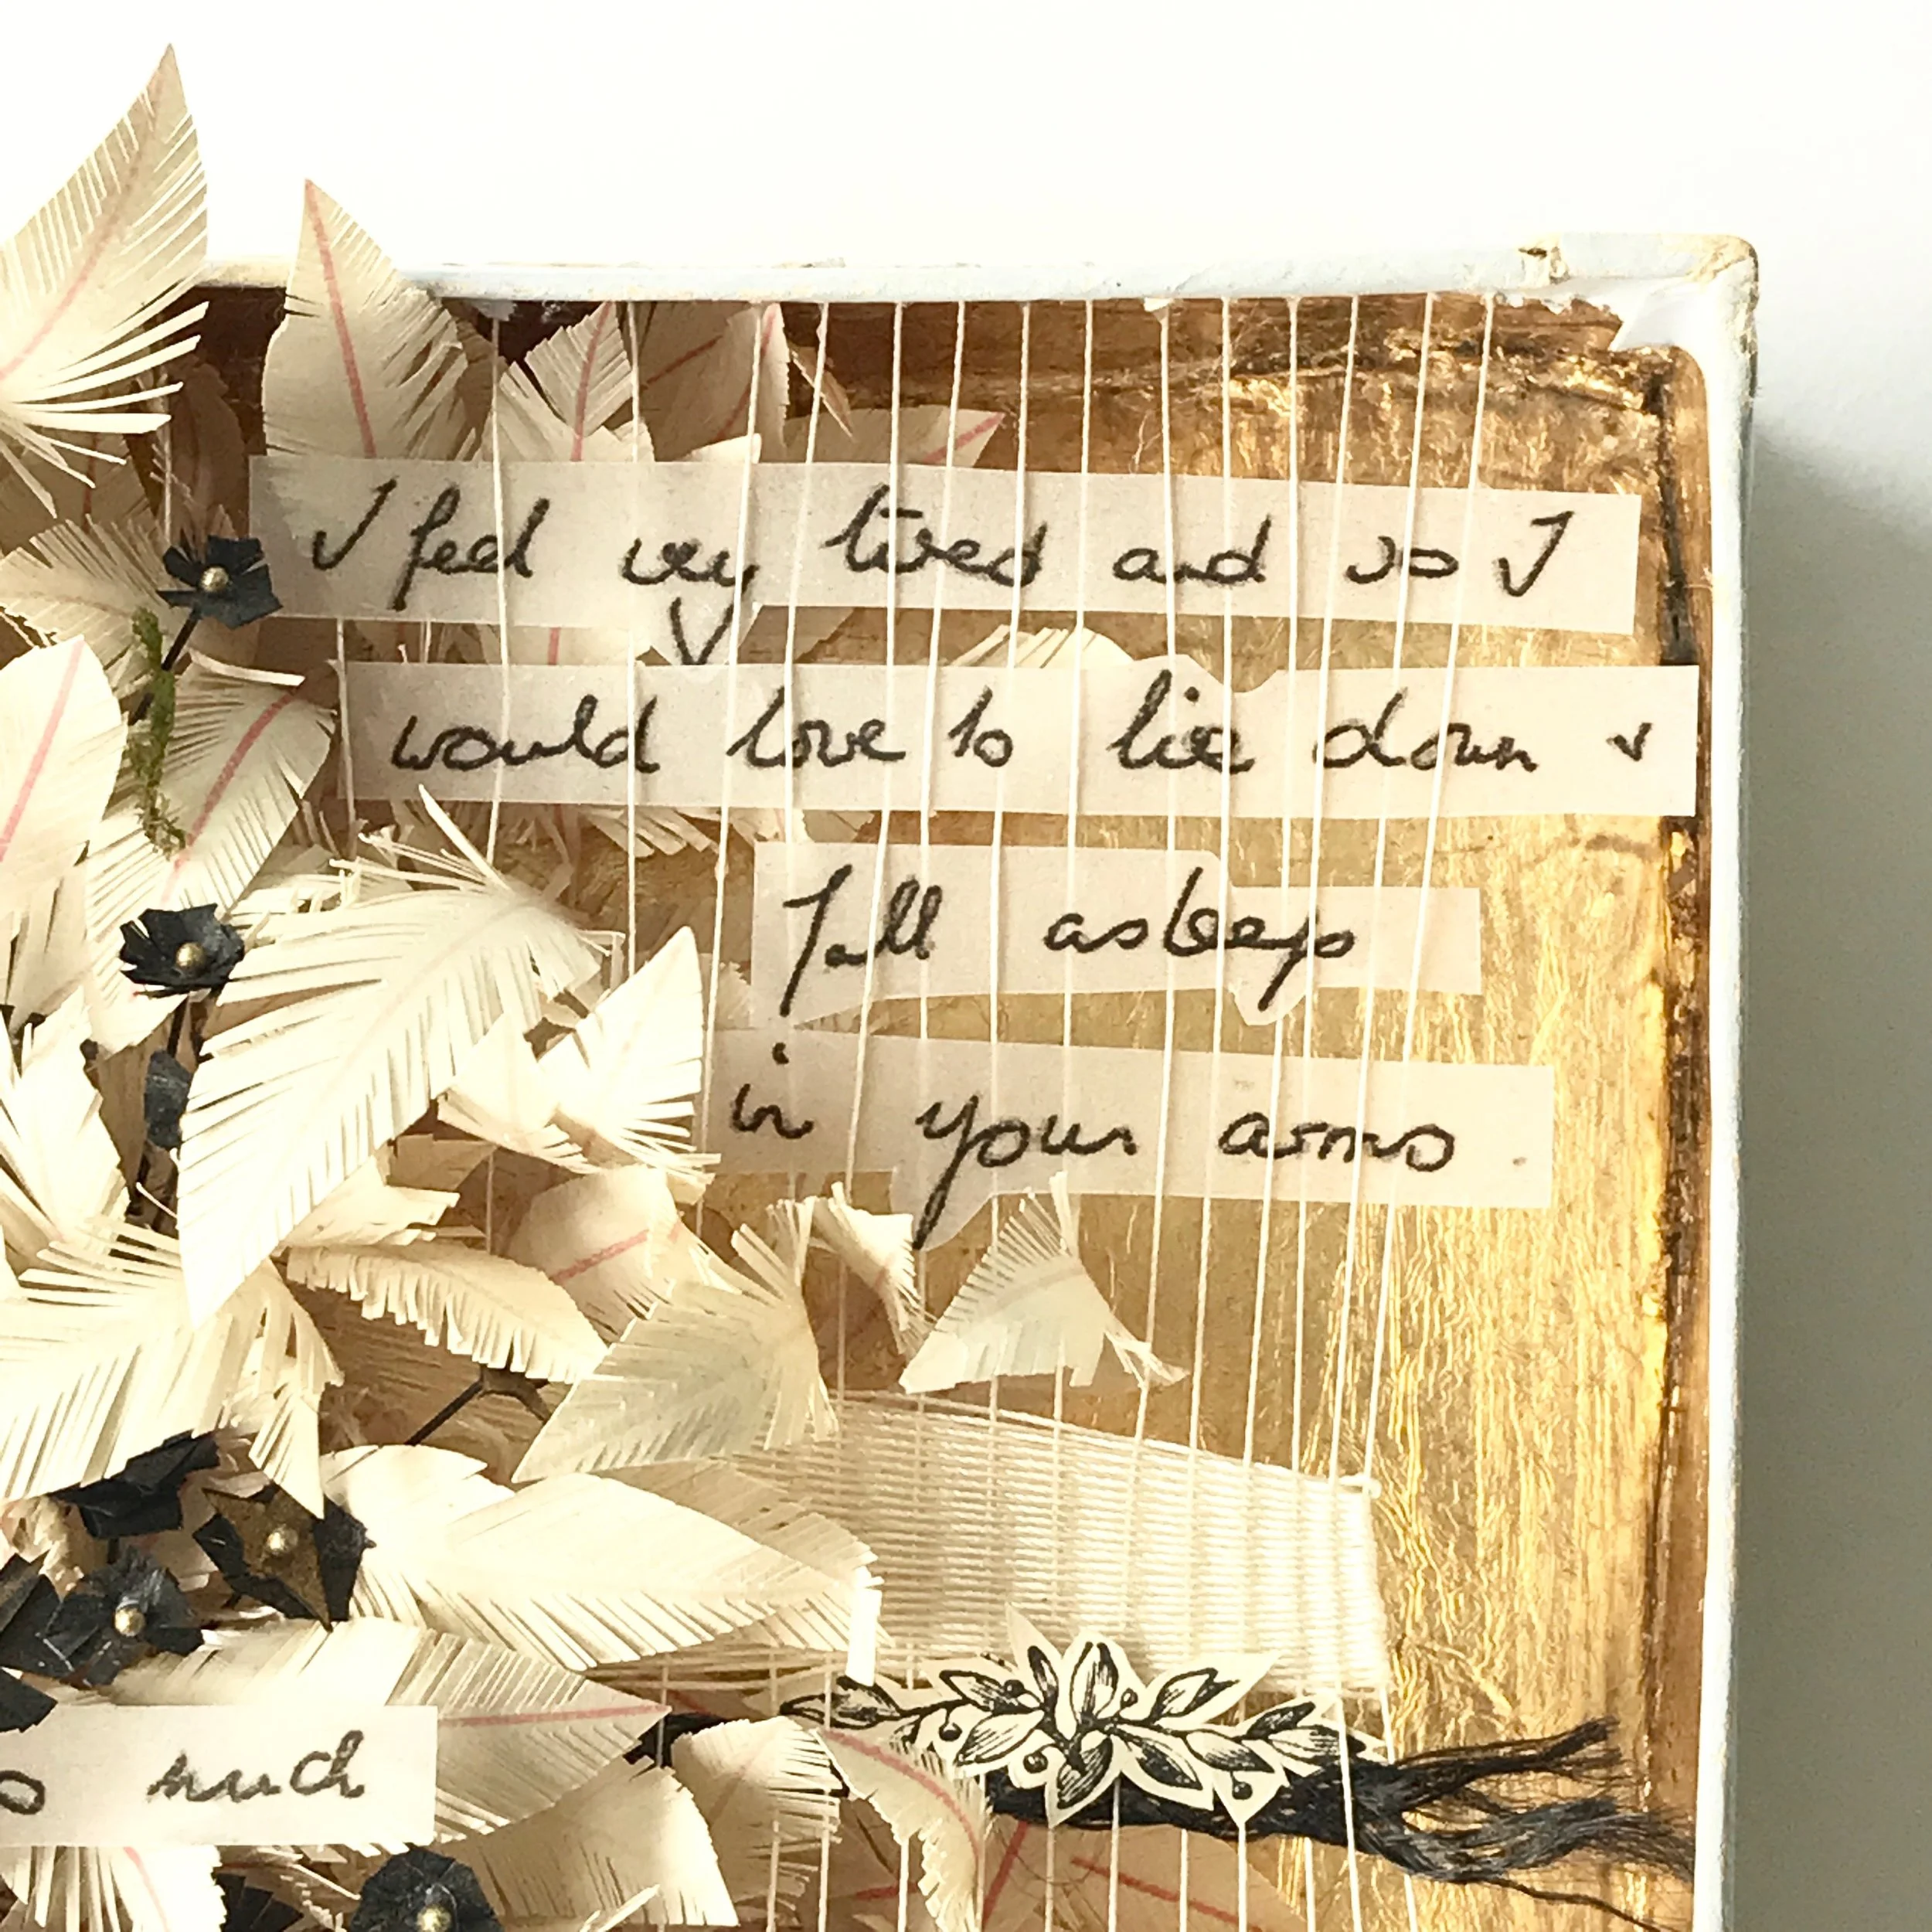 I feel very tired and so I
would love to lie down &
fall asleep
in your arms.
much